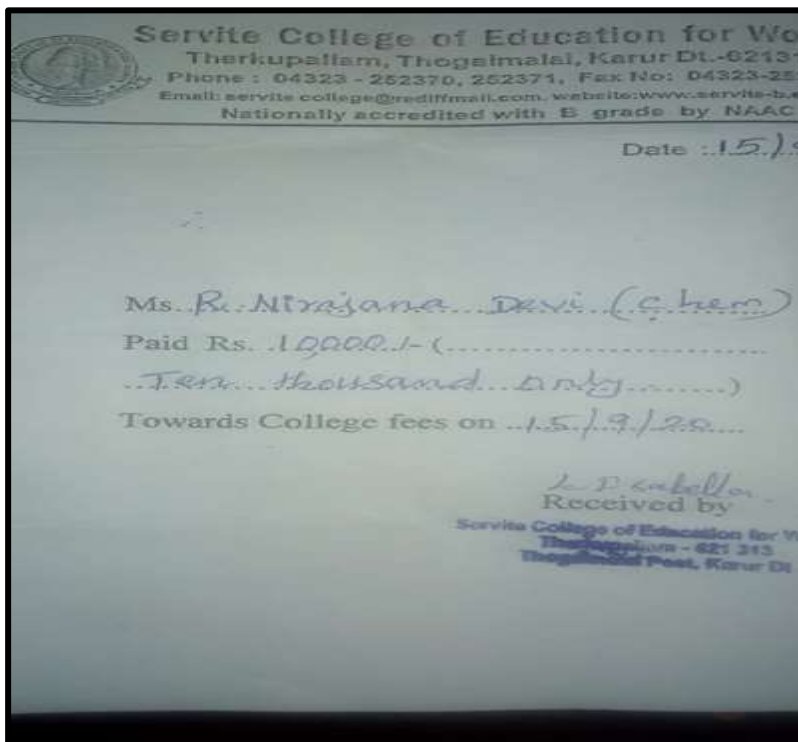 Servite College of Education for Wo
Therkupallam, Thogaimalai, Karur Dt.-62131
Phone : 04323 - 252370, 252371, Fax No: 04323-25
Email: servite college@rediffmail.com. website:www.servite-b.e
Nationally accredited with B grade by NAAC
Date : 15/
Ms. R. Nirajana Devi (chem)
Paid Rs. 10,000/- (
Ten thousand only )
Towards College fees on 15/9/20
Received by
Servite College of Education for W
- 621 313
Thogaimalai Post, Karur Dt